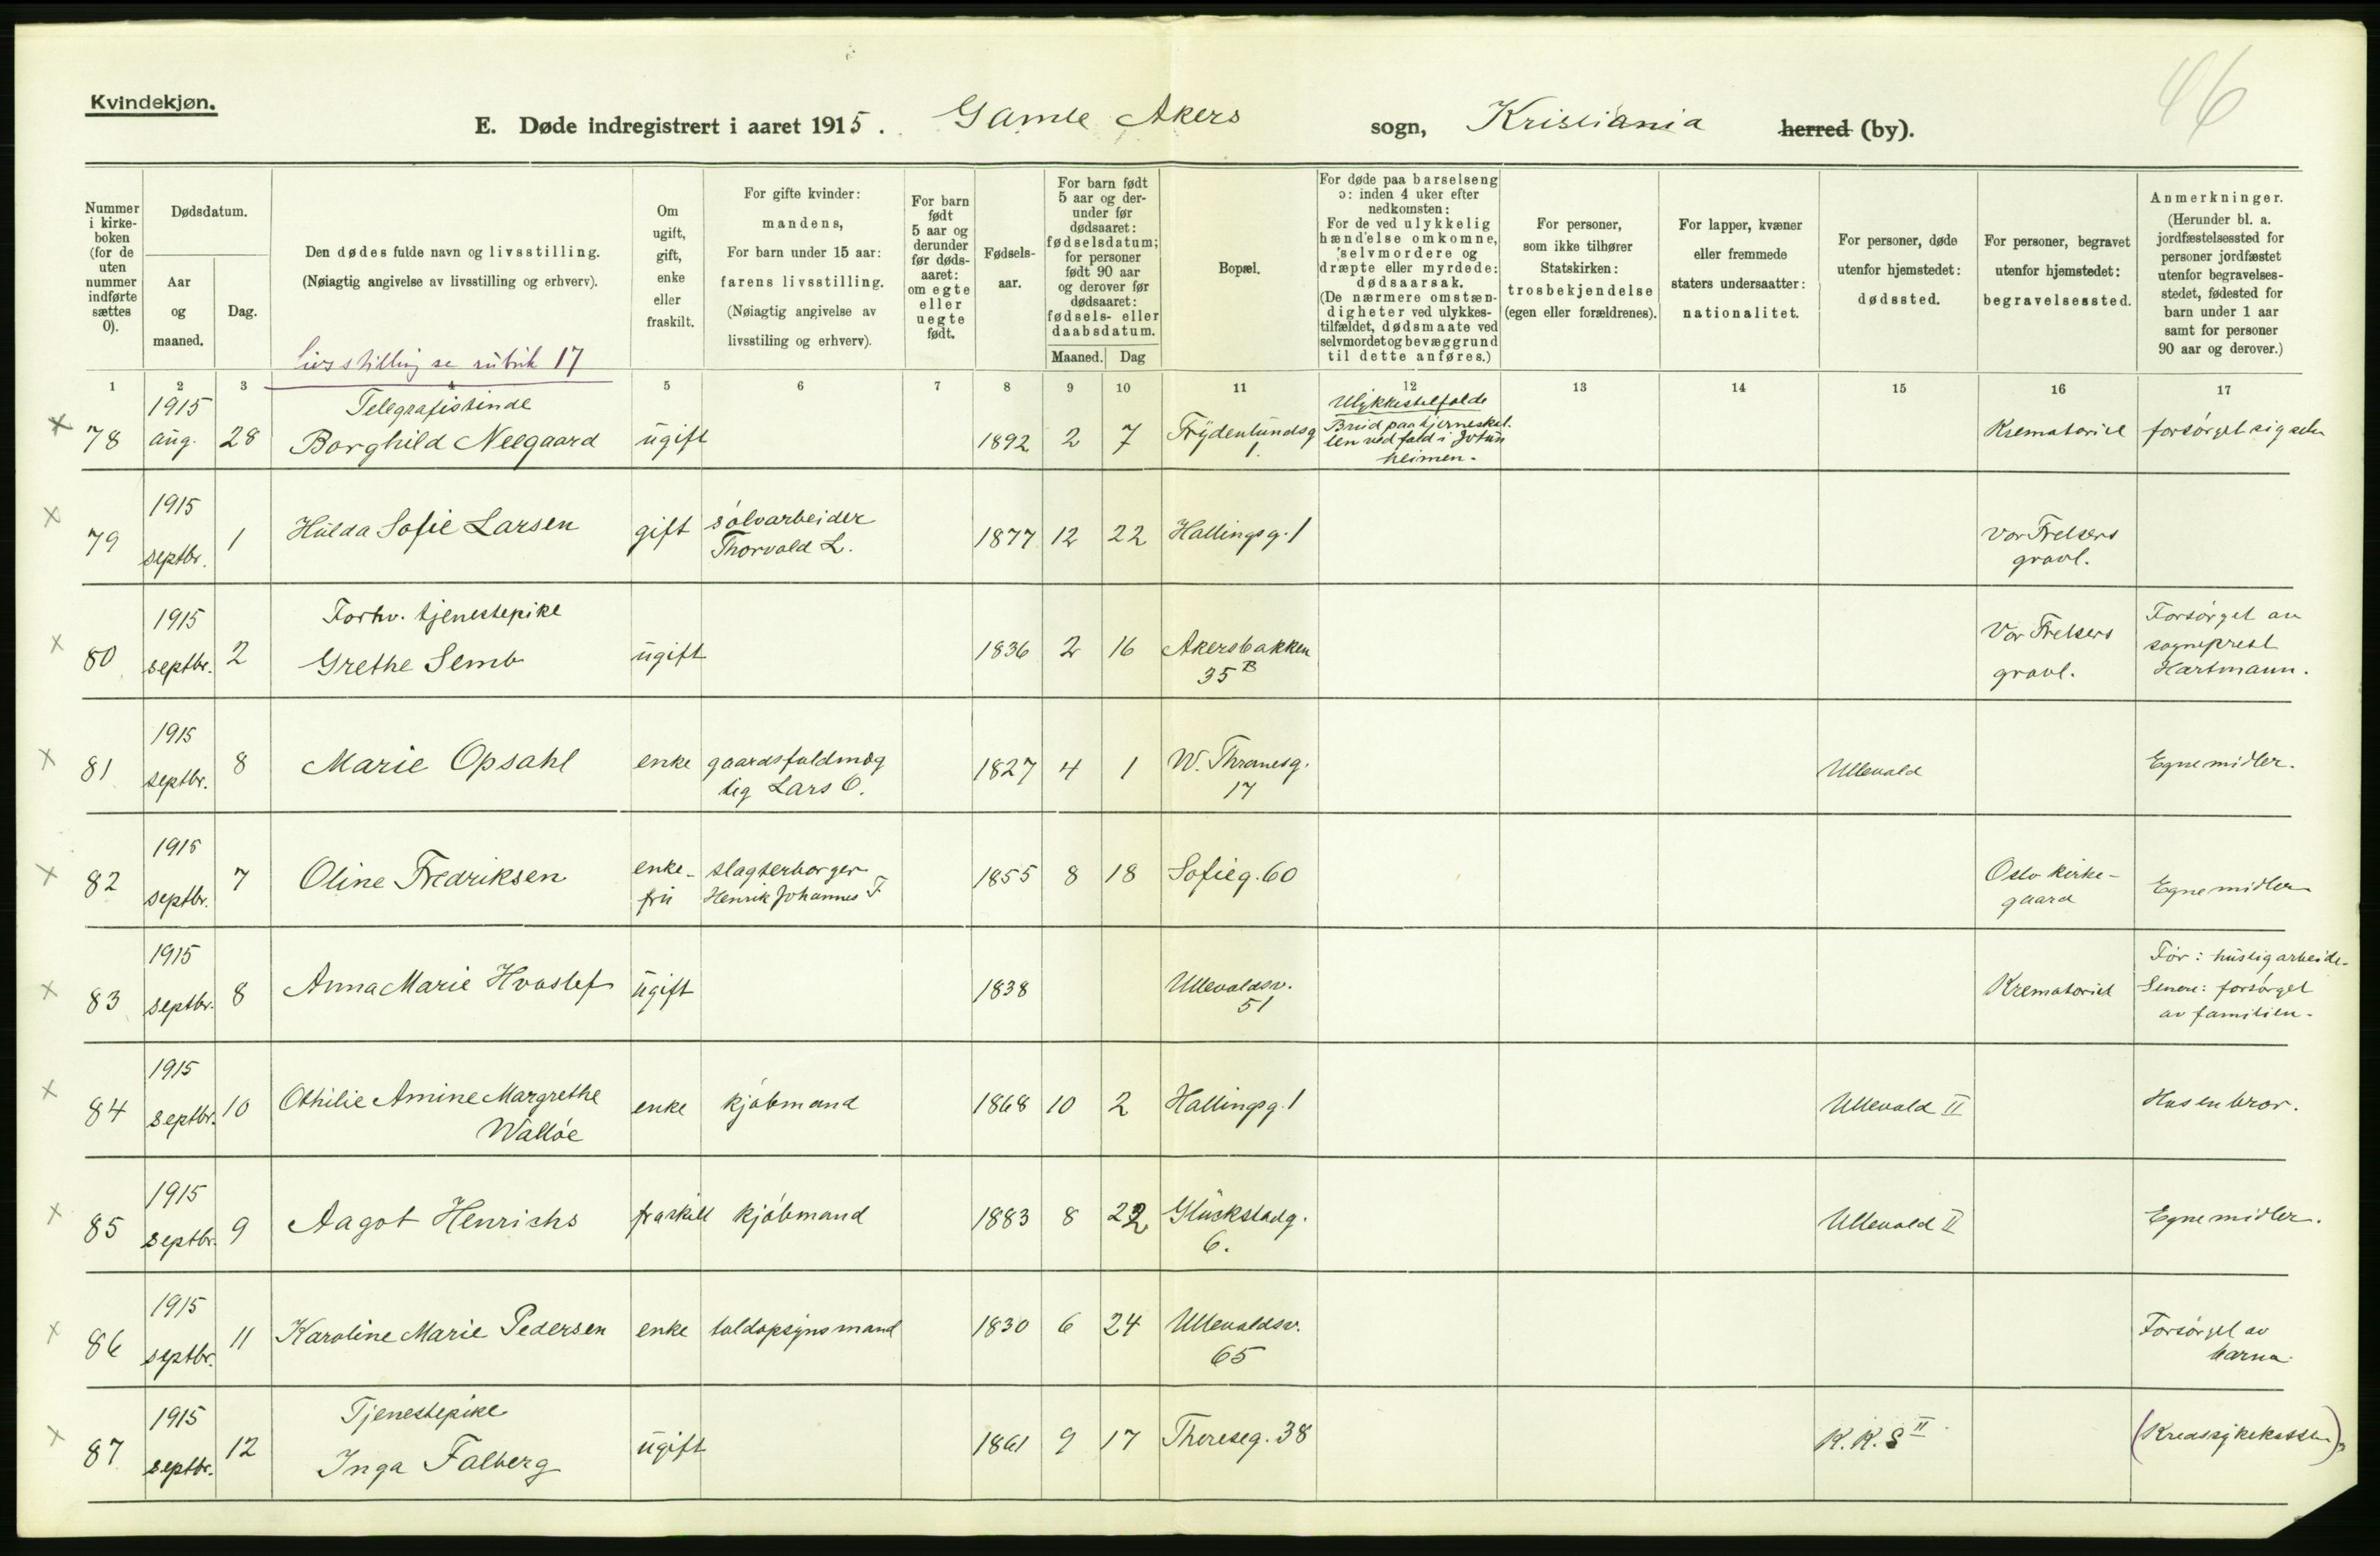 46
Kvindekjøn.
E. Døde indregistrert i aaret 1915. Gamle Akers sogn, Kristiania herred (by).
Nummer i kirke-boken (for de uten nummer indførte sættes 0).
Dødsdatum.
Aar og maaned.
Dag.
Den dødes fulde navn og livsstilling.
(Nøiagtig angivelse av livsstilling og erhverv).
Livsstilling se rubrik 17
Om ugift, gift, enke eller fraskilt.
For gifte kvinder: mandens,
For barn under 15 aar: farens livsstilling.
(Nøiagtig angivelse av livsstiling og erhverv).
For barn født 5 aar og derunder før døds-aaret: om egte eller uegte født.
Fødsels-aar.
For barn født 5 aar og der-under før dødsaaret: fødselsdatum; for personer født 90 aar og derover før dødsaaret: fødsels- eller daabsdatum.
Maaned. Dag
Bopæl.
For døde paa barselseng ɔ: inden 4 uker efter nedkomsten:
For de ved ulykkelig hændelse omkomne, selvmordere og dræpte eller myrdede: dødsaarsak.
(De nærmere omstæn-digheter ved ulykkes-tilfældet, dødsmaate ved selvmordet og bevæggrund til dette anføres.)
For personer, som ikke tilhører Statskirken: trosbekjendelse (egen eller forældrenes).
For lapper, kvæner eller fremmede staters undersaatter: nationalitet.
For personer, døde utenfor hjemstedet: dødssted.
For personer, begravet utenfor hjemstedet: begravelsessted.
Anmerkninger.
(Herunder bl. a. jordfæstelsessted for personer jordfæstet utenfor begravelses-stedet, fødested for barn under 1 aar samt for personer 90 aar og derover.)
1 2 3 4 5 6 7 8 9 10 11 12 13 14 15 16 17
x 78 1915 aug. 28 Telegrafistinde Borghild Neegaard ugift 1892 2 7 Frydenlundsg 1. Ulykkestilfælde Brud paa hjerneskal-len ved fald i Jotun heimen. Krematoriet forsørget sig selv
x 79 1915 septbr. 1 Hulda Sofie Larsen gift sølvarbeider Thorvald L. 1877 12 22 Hallingsg. 1 Vor Frelsers gravl.
x 80 1915 septbr. 2 Forhv. tjenestepike Grethe Semb ugift 1836 2 16 Akersbakken 35 B Vor Frelsers gravl. Forsørget av sogneprest Hartmann.
x 81 1915 septbr. 8 Marie Opsahl enke gaardsfuldmæg tig Lars O. 1827 4 1 W. Thranesg. 17 Ullevold Egne midler.
x 82 1915 septbr. 7 Oline Fredriksen enke-fru slagterborger Henrik Johannes F 1855 8 18 Sofieg. 60 Oslo kirke-gaard Egne midler
x 83 1915 septbr. 8 Anna Marie Hvoslef ugift 1838 Ullevoldsv. 51 Krematoriet Før: huslig arbeide. Senere: forsørget av familien.
x 84 1915 septbr. 10 Othilie Amine Margrethe Walløe enke kjøbmand 1868 10 2 Hallingsg. 1 Ullevold II Hos en bror.
x 85 1915 septbr. 9 Aagot Henrichs fraskilt kjøbmand 1883 8 22 Glückstadg. 6. Ullevold II Egne midler.
x 86 1915 septbr. 11 Karoline Marie Pedersen enke toldopsynsmand 1830 6 24 Ullevoldsv. 65 Forsørget av barna.
x 87 1915 septbr. 12 Tjenestepike Inga Falberg ugift 1861 9 17 Thereseg. 38 K. K. S II. (Kredssykekassen)